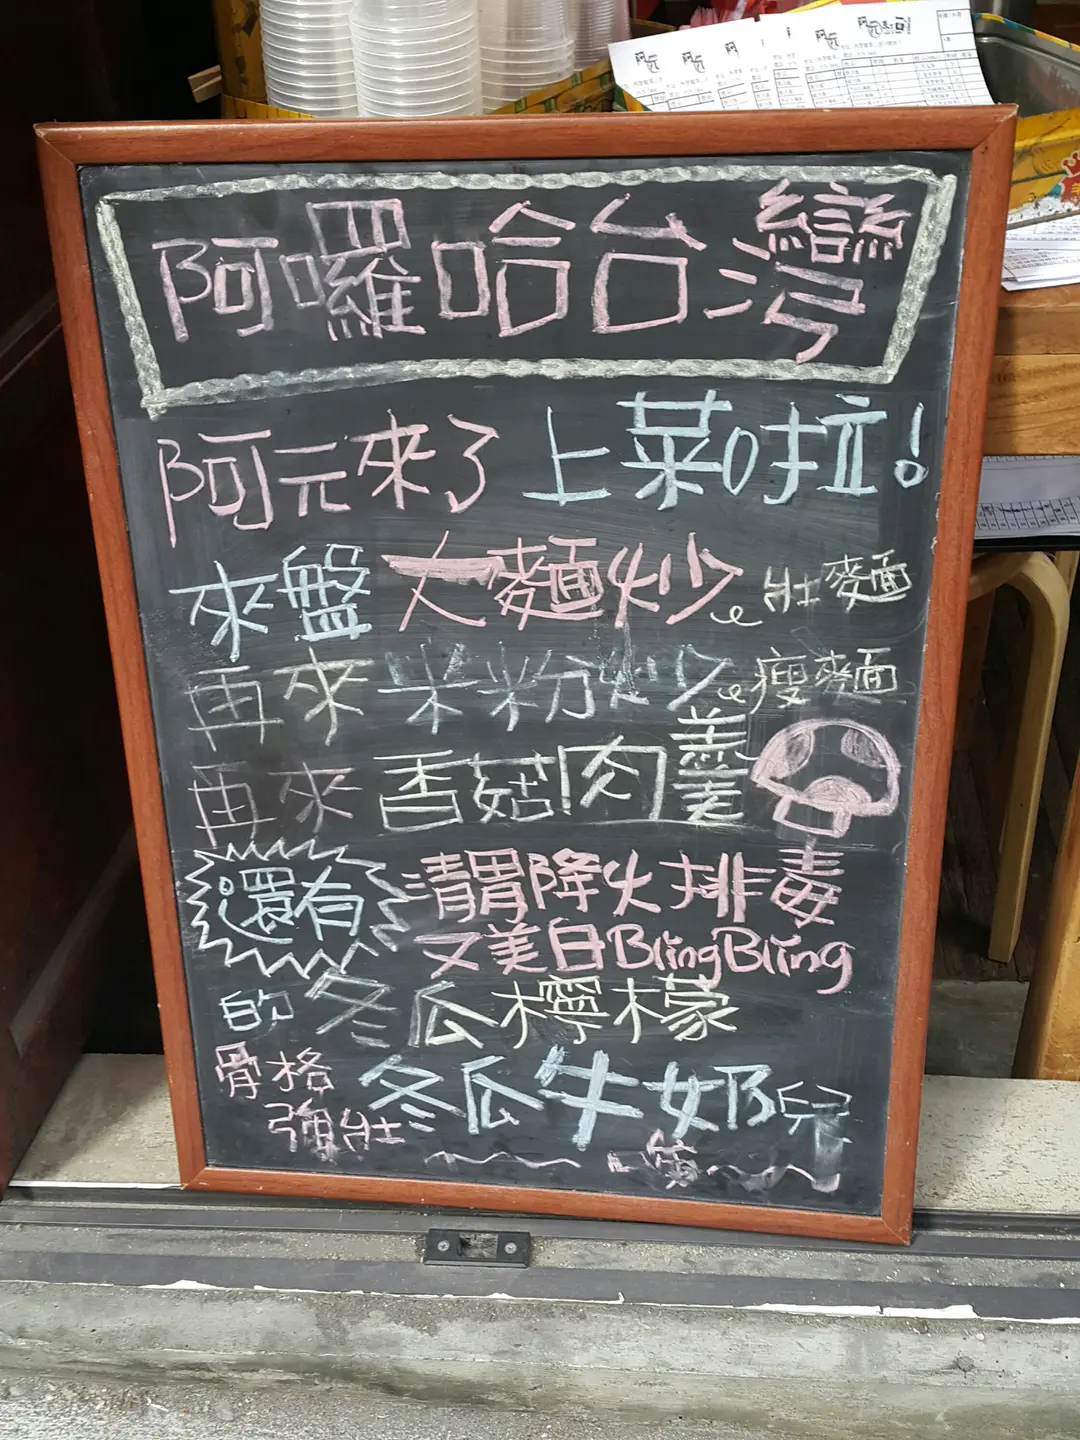 阿囉哈台灣
阿元來了 上菜啦!
來盤 大麵炒 壯麵
再來 米粉炒 瘦麵
再來 香菇肉羹
還有 清胃降火排毒
又美白BlingBling
的 冬瓜檸檬
骨格 冬瓜牛奶兒
強壯